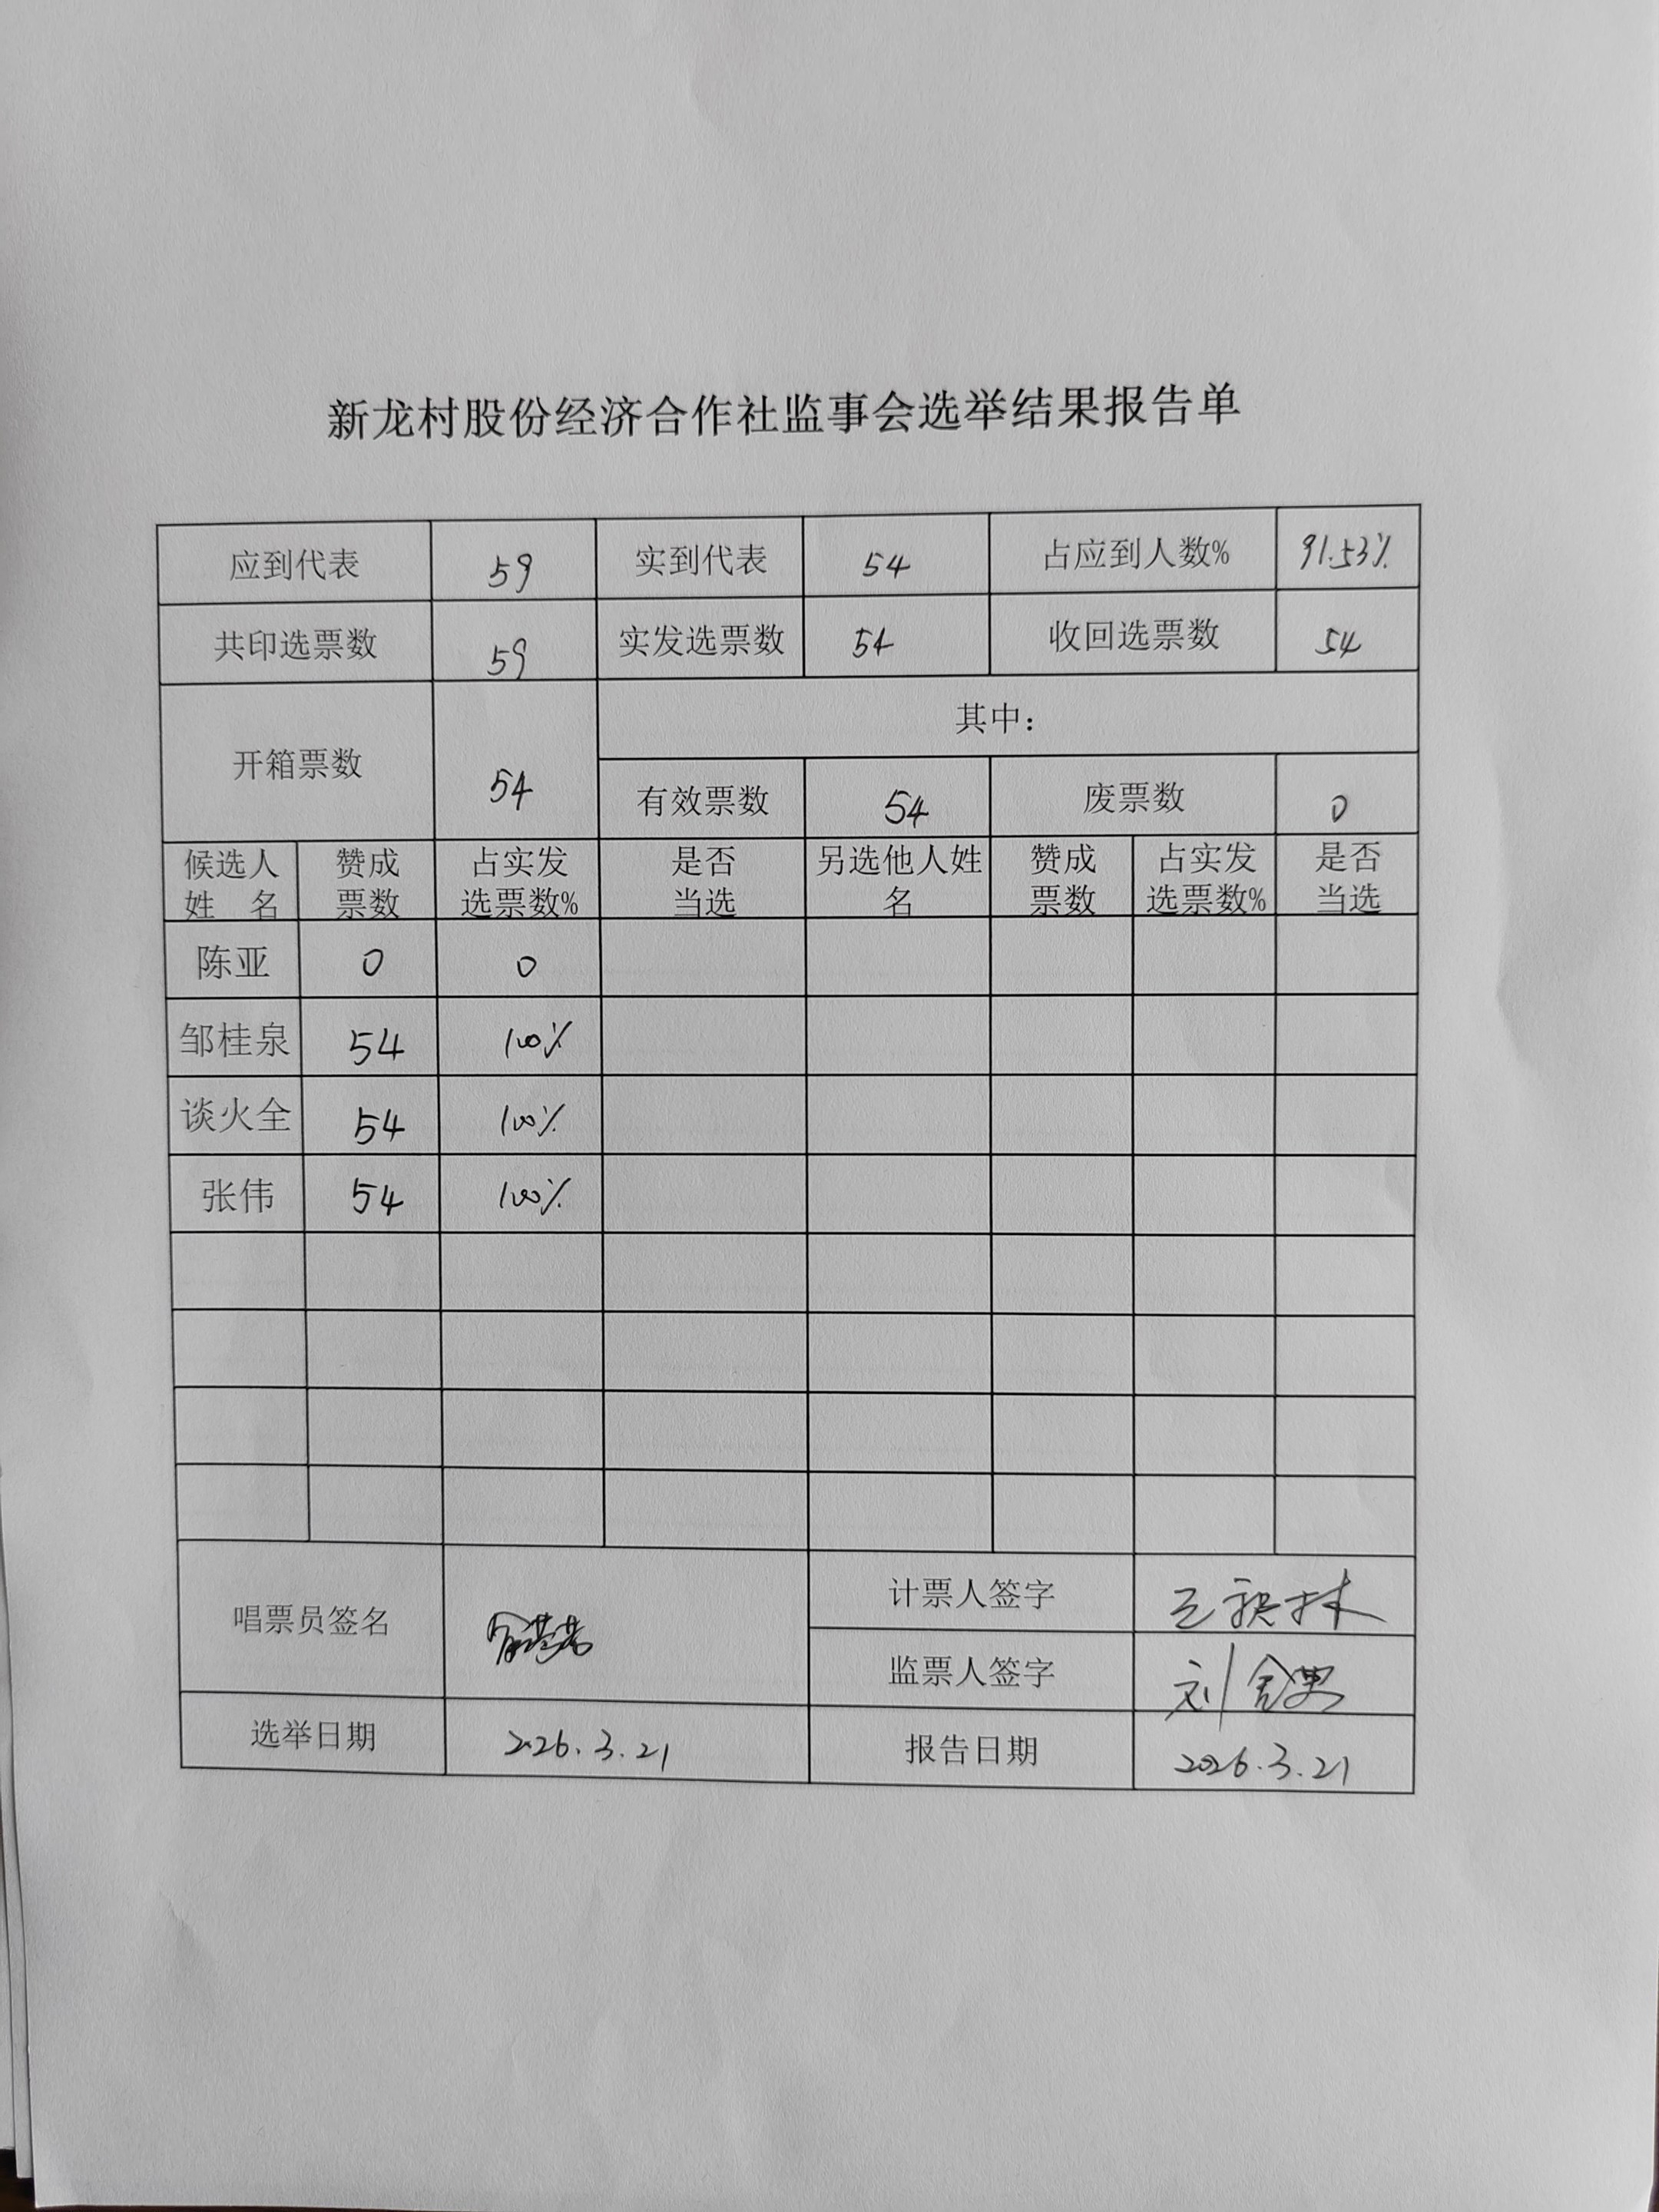 新龙村股份经济合作社监事会选举结果报告单
应到代表 59 实到代表 54 占应到人数% 91.53%
共印选票数 59 实发选票数 54 收回选票数 54
开箱票数 54 其中：
有效票数 54 废票数 0
候选人姓 名 赞成票数 占实发选票数% 是否当选 另选他人姓名 赞成票数 占实发选票数% 是否当选
陈亚 0 0
邹桂泉 54 100%
谈火全 54 100%
张伟 54 100%
唱票员签名 计票人签字
监票人签字 刘
选举日期 2026.3.21 报告日期 2026.3.21